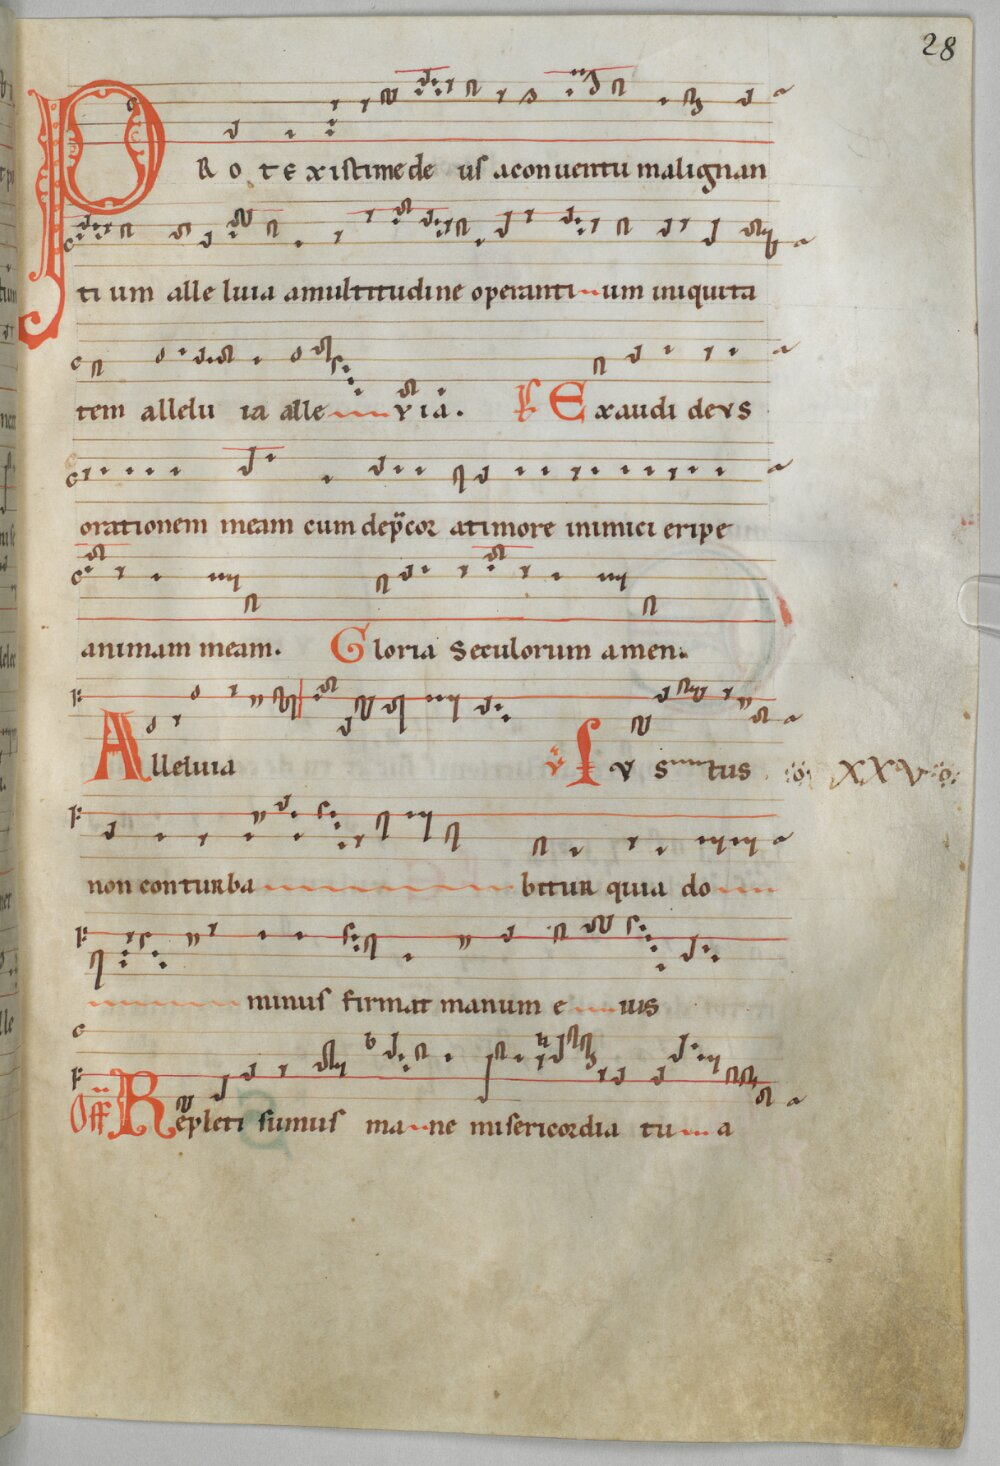 28
PRotexistimede us aconuentu malignan
tium alleluia amultitudine operantium iniquita
tem alleluia alleluia. Exaudi deus
orationem meam cum dep̄cor atimore inimici eripe
animam meam. Gloria Seculorum amen.
Alleluia Iustus XXV
non conturbabitur quia do
minus firmat manum eius
Off Repleti sumus mane misericordia tua